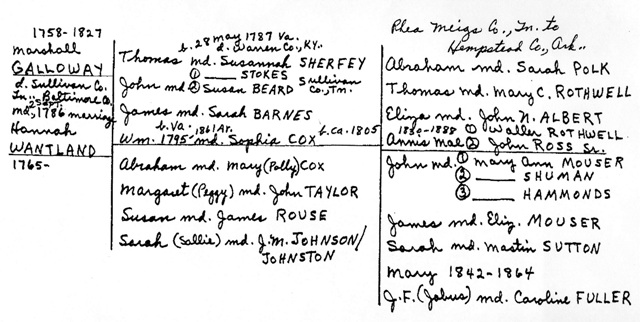 1758-1827
Marshall
GALLOWAY
d. Sullivan Co.
Tn. Baltimore Co.,
md, 1786 marriage
Hannah
WANTLAND
1765-
b. 28 may 1787 Va.
d. Warren Co., KY..
Thomas md. Susannah SHERFEY
① ___ STOKES
John md ② Susan BEARD Sullivan Co., Tn.
James md. Sarah BARNES
b. Va. 1861 Ar.
Wm. 1795 md. Sophia COX b. ca. 1805
Abraham md. Mary (Polly) COX
Margaret (Peggy) md. John TAYLOR
Susan md. James ROUSE
Sarah (Sallie) md. J.M. JOHNSON/
JOHNSTON
Rhea Meigs Co., Tn. to
Hempstead Co., Ark..
Abraham md. Sarah POLK
Thomas md. Mary C. ROTHWELL
Eliza md. John N. ALBERT
1830-1888 ① Waller ROTHWELL
Annis Mae ② John ROSS Sr.
John md. ① Mary Ann MOUSER
② ___ SHUMAN
③ ___ HAMMONDS
James md. Eliz. MOUSER
Sarah md. Mastin SUTTON
Mary 1842-1864
J.F. (Jabus) md. Caroline FULLER